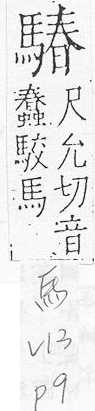 䮞
尺允切音
蠢駮馬
馬
V13
P9